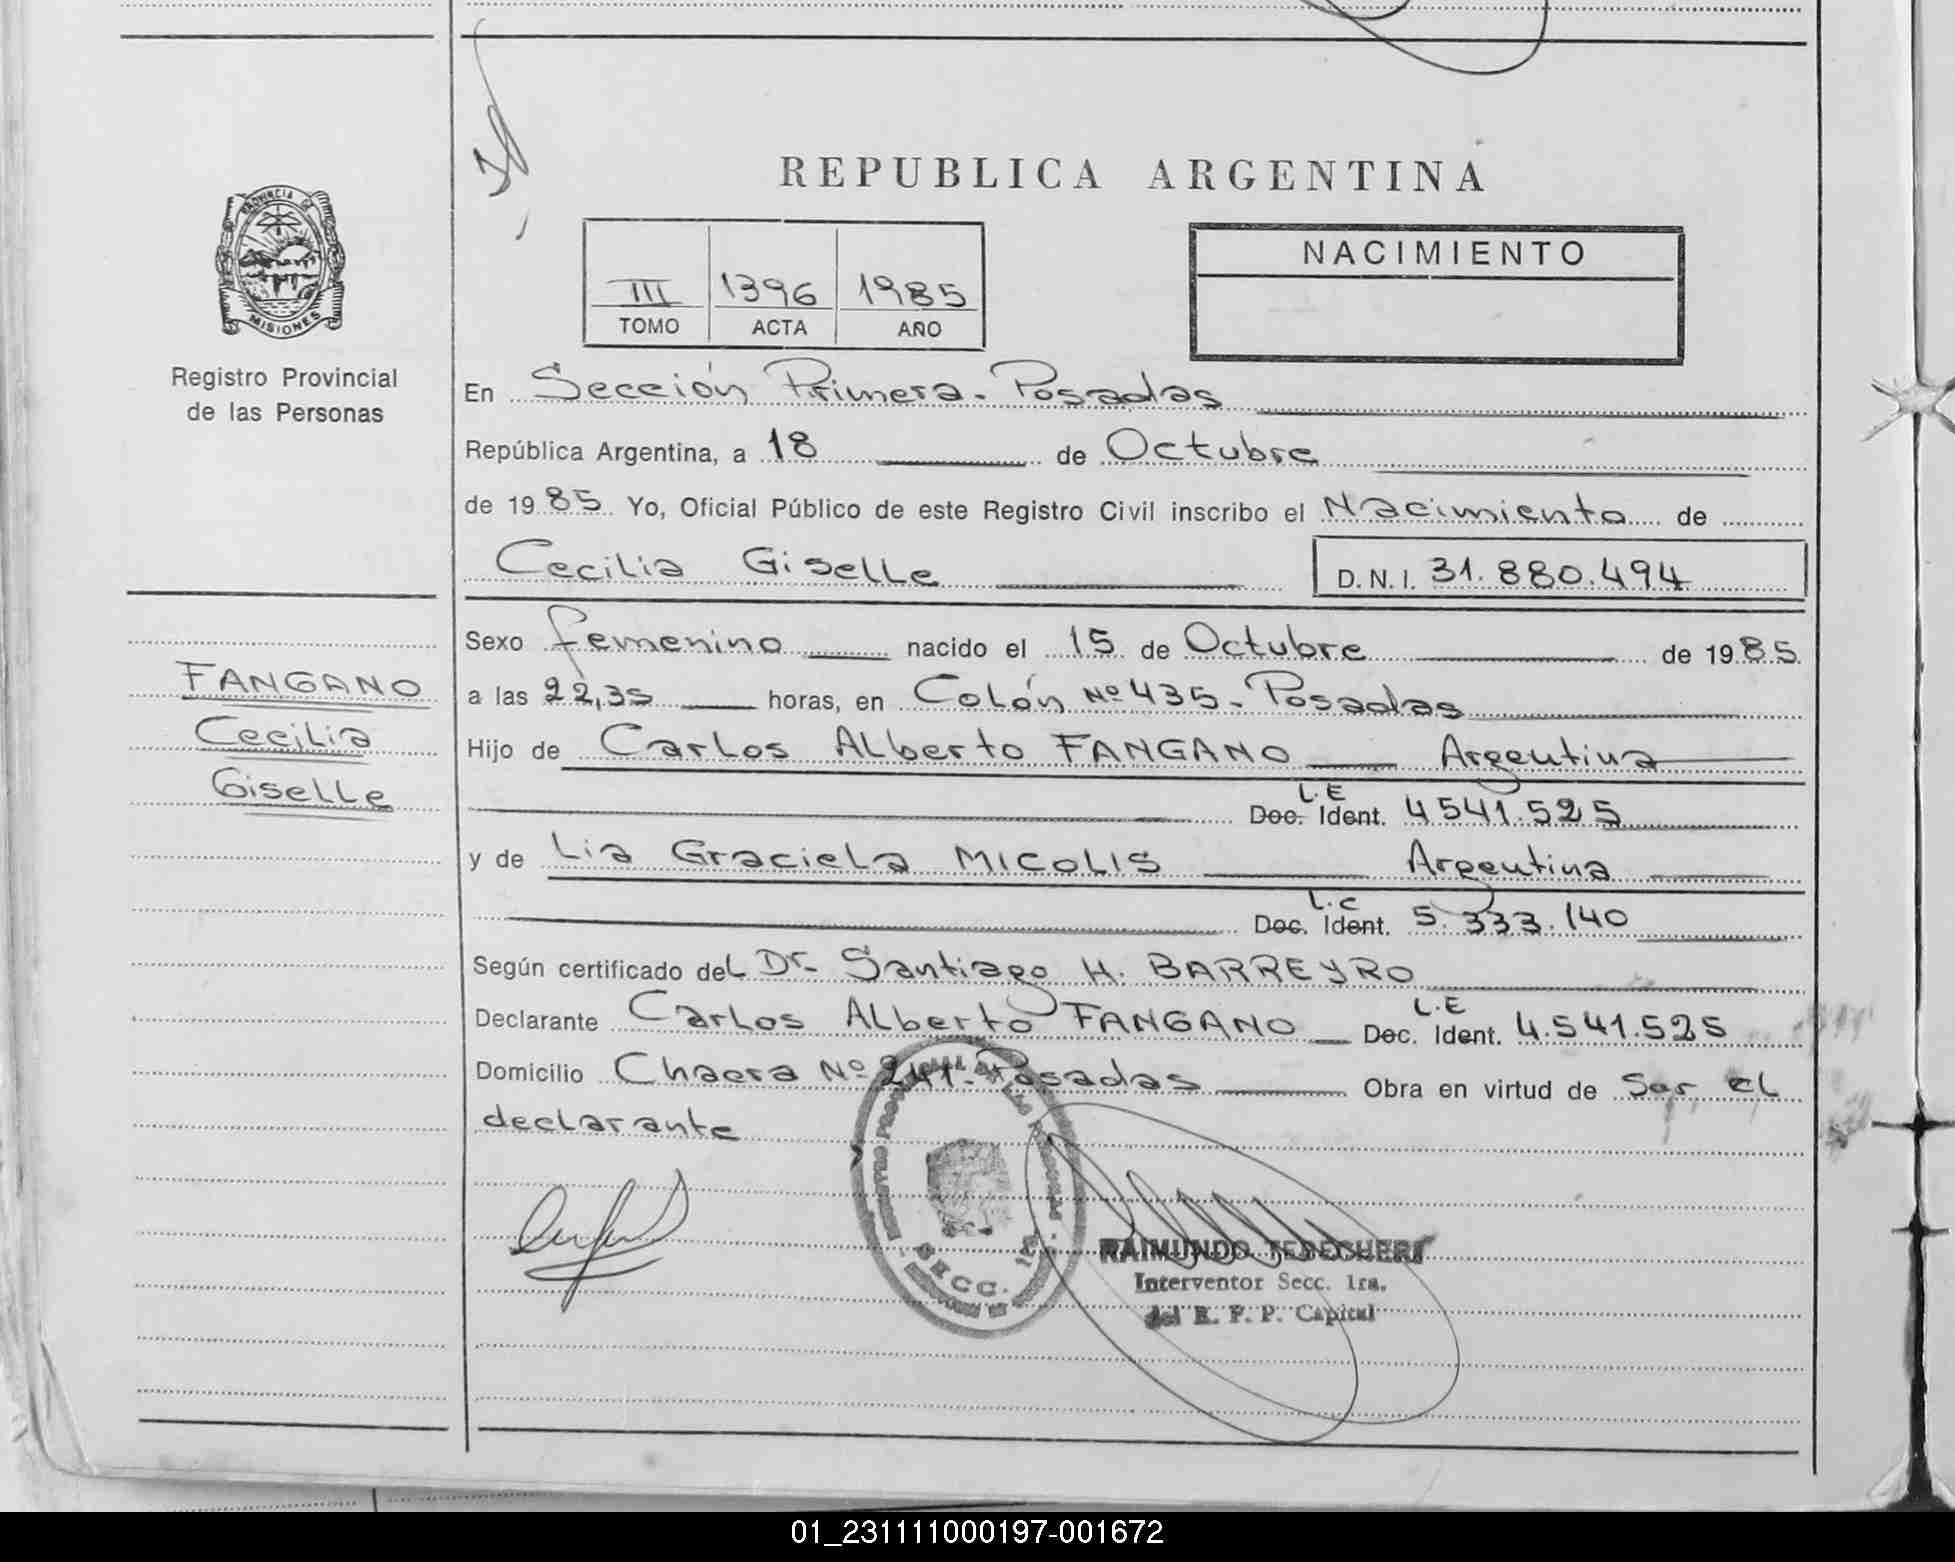 REPUBLICA ARGENTINA
PROVINCIA DE
MISIONES
Registro Provincial
de las Personas
III 1396 1985
TOMO ACTA AÑO
NACIMIENTO
En Sección Primera - Posadas
República Argentina, a 18 de Octubre
de 1985 Yo, Oficial Público de este Registro Civil inscribo el Nacimiento de
Cecilia Giselle D.N.I. 31.880.494
FANGANO
Cecilia
Giselle
Sexo femenino nacido el 15 de Octubre de 1985
a las 22,35 horas, en Colón Nº 435 - Posadas
Hijo de Carlos Alberto FANGANO Argentina
L.E
Doc. Ident. 4541.525
y de Lia Graciela MICOLIS Argentina
L.C
Doc. Ident. 5.333.140
Según certificado del Dr. Santiago H. BARREYRO
L.E
Declarante Carlos Alberto FANGANO Doc. Ident. 4.541.525
Domicilio Chacra Nº 241 - Posadas Obra en virtud de Ser el
declarante
SECC. 1ra
RAIMUNDO TEDESCHERI
Interventor Secc. 1ra.
del R. P. P. Capital
01_231111000197-001672